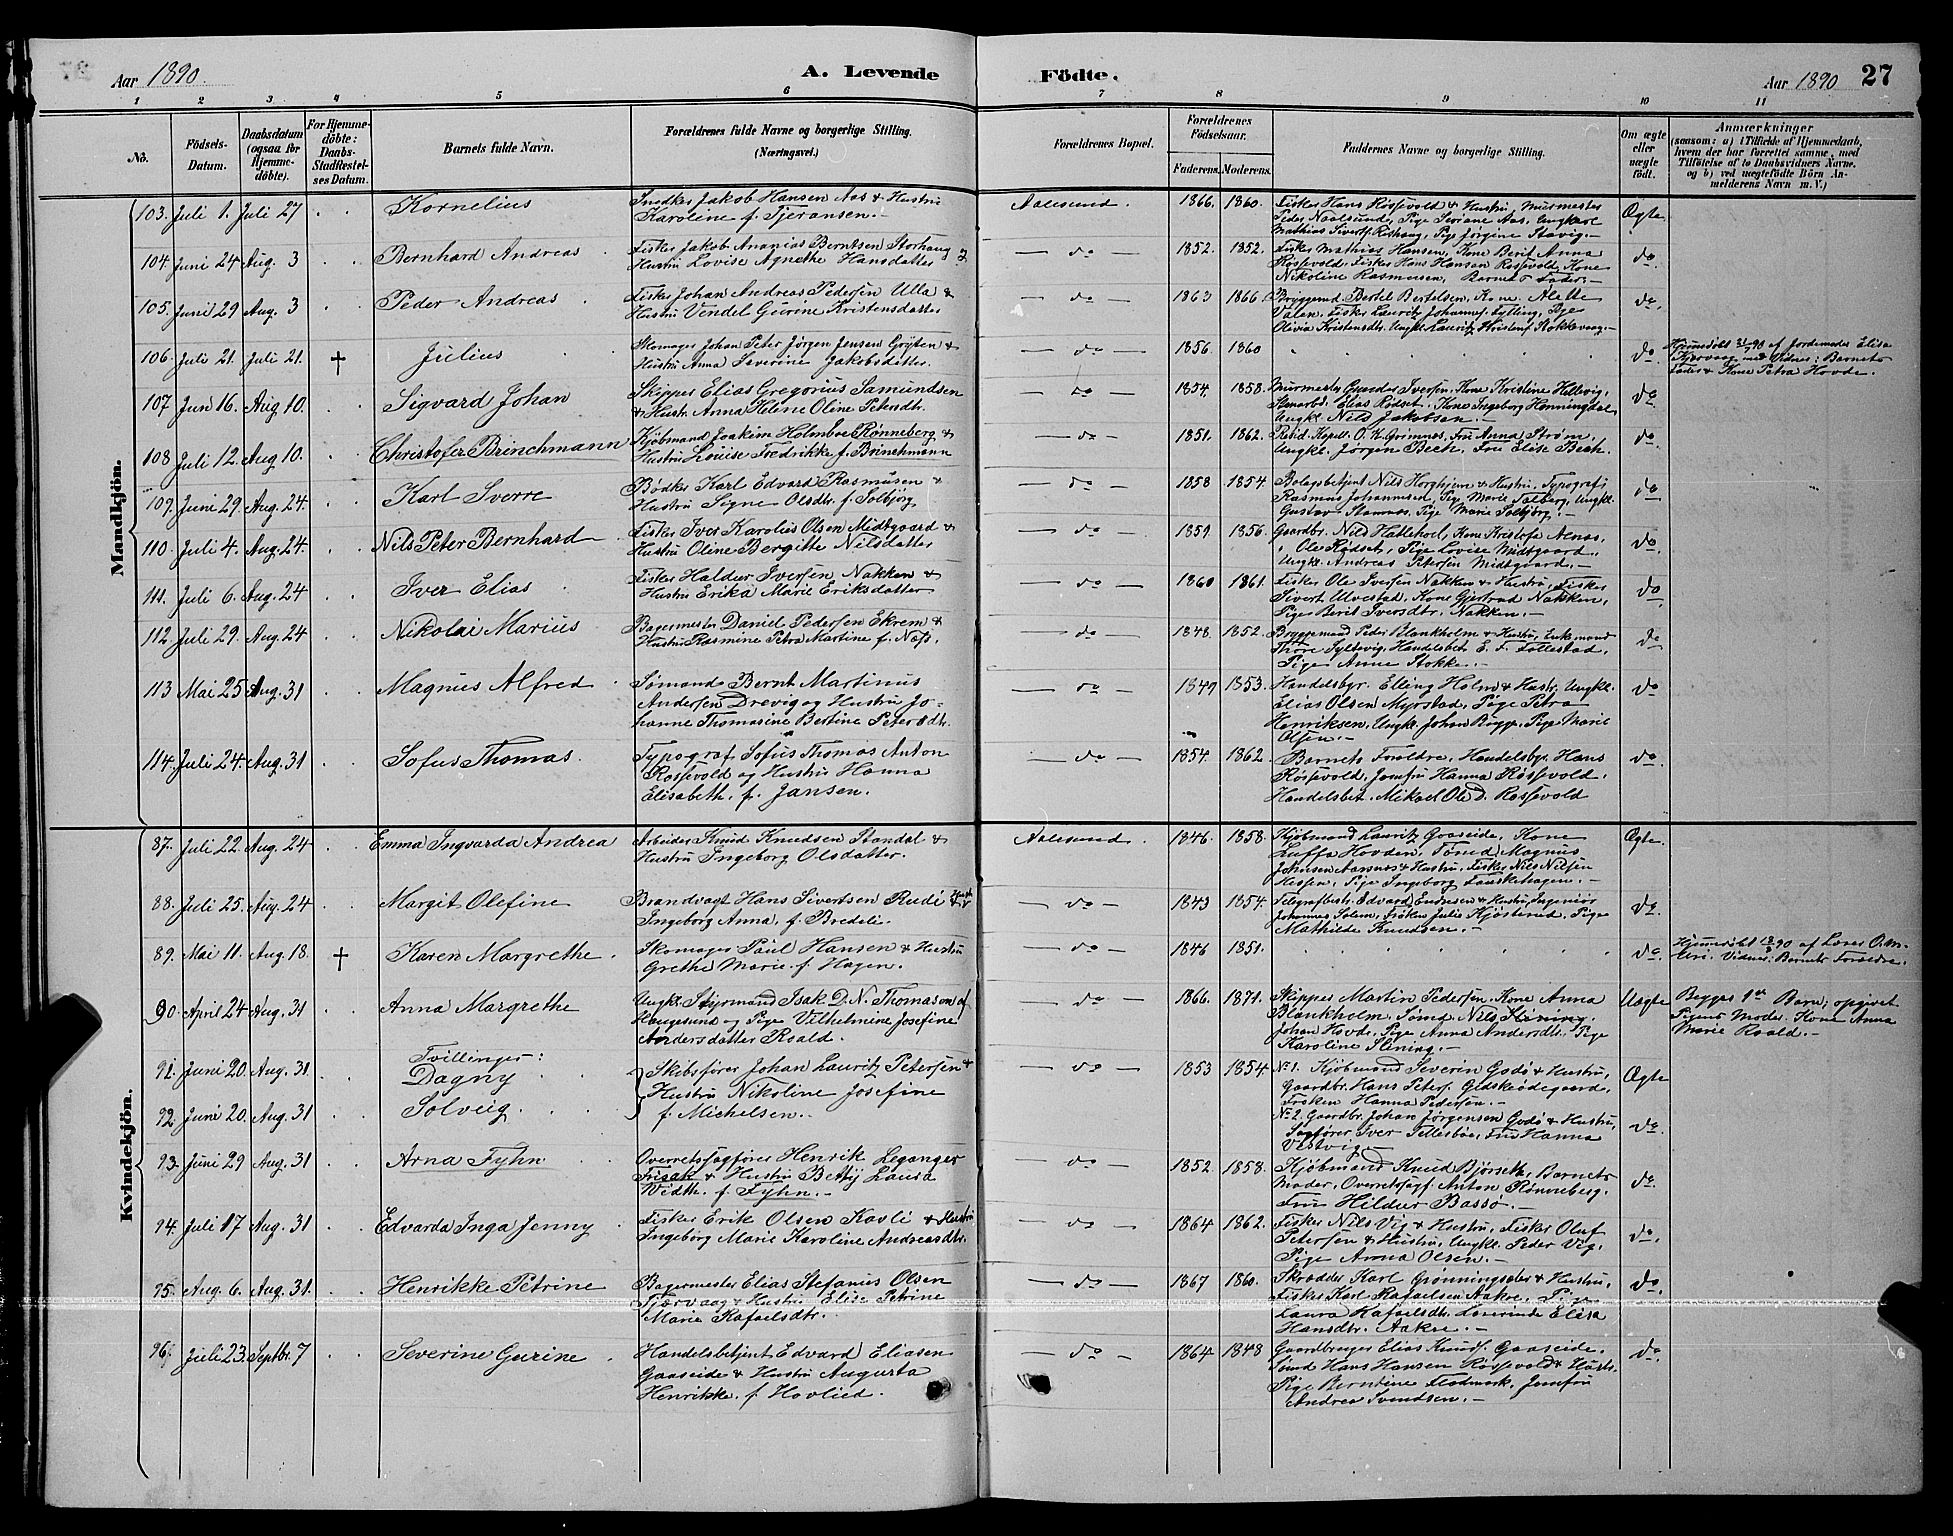 Aar 1890.
A. Levende
Födte.
Aar 1890
27
1 2 3. 4 5 6 7 8 9 10 11
No.
Födsels-
Datum.
Daabsdatum
(ogsaa for
Hjemme-
döbte).
For Hjemme-
döbte:
Daabs-
Stadfæstel-
ses Datum.
Barnets fulde Navn.
Forældrenes fulde Navne og borgerlige Stilling.
(Næringsvei.)
Forældrenes Bopæl.
Forældrenes
Födselsaar.
Faderens. Moderens.
Faddernes Navne og borgerlige Stilling.
Om ægte
eller
uægte
födt.
Anmærkninger
(saasom: a) i Tilfælde af Hjemmedaab,
hvem der har forrettet samme, med
Tilföielse af to Daabsvidners Navne.
og b) ved uægtefödte Börn An-
melderens Navn m. V.)
Mandkjön.
103. Juli 1. Juli 27 Kornelius
Snedker Jakob Hansen Aas & Hustru
Karoline f. Tjeransen.
Aalesund. 1866. 1860.
Fisker Hans Røsevold & Hustru, Murmester
Peder Naalsund, Pige Seriane Aas, Ungkarl
Mathias Sivertf. Rishaug, Pige Jørgine Stavig.
Ægte
104. Juni 24 Aug. 3 Bernhard Andreas
Fisker Jakob Ananias Berntsen Storhaug &
Hustru Lovise Agnethe Hansdatter
do 1852. 1852.
Fisker Mathias Hansen, Kone Berit Anna
Røsevold, Fisker Hans Hansen Røsevold, Kone
Nikoline Rasmusen, Barnets Fader.
do.
105. Juni 29 Aug. 3 Peder Andreas
Fisker Johan Andreas Pedersen Ulla &
Hustru Vendel Gurine Kristensdatter
do 1863 1866.
Bryggemd. Bertel Bertelsen, Kone Alette
Valen, Fisker Lauritz Johannesf. Fylling, Pige
Olivia Kristensdtr. Ungkl. Lauritz Kristenf. Rokkevaag.
do
106. Juli 21. Juli 21. † Julius
Skomager Johan Peter Jørgen Jensen Grytten &
Hustru Anna Severine Jakobsdatter.
do 1856. 1860
do
Hjemmedøbt 21/7 90 af Jordemoder Elisa
Kjervaag med Vidner: Barnets
Fader & Kone Petra Hovde.
107 Jun 16. Aug. 10. Sigvard Johan
Skipper Elias Gregorius Samundsen
& Hustr. Anna Heline Oline Petersdtr.
do 1854. 1858.
Murmester Gunder Iversen, Kone Kristine Hellevig,
Stenarbd. Elias Rødset, Kone Ingeborg Honningdal
Ungkl. Nils Jakobsen.
do
108 Juli 12. Aug 10. Christofer Brinchmann
Kjøbmand Joakim Holmboe Rønneberg &
Hustru Louise Fredrikke f. Brinchmann
do 1851. 1862.
Resid. Kapell. O. K. Grimnes, Fru Anna Strøm,
Ungkl. Jørgen Bech. Fru Elise Bech.
do.
109. Juni 29. Aug. 24. Karl Sverre
Bødker Karl Edvard Rasmusen &
Hustru Signe Olsdtr. f. Solbjørg
do 1858 1854.
Bolagsbetjent Nils Horghjem & Hustru, Typograf
Rasmus Johannesd, Pige Marie Solberg, Ungkl.
Gustav Stamnes, Pige Marie Solbjørg.
do
110. Juli 4. Aug. 24. Nils Peter Bernhard
Fisker Iver Karolius Olsen Midtgaard &
Hustru Oline Bergitte Nilsdatter
do 1859 1856.
Gaardbr. Nils Hatlehol, Kone Kristofa Aenes,
Ole Rødset, Pige Lovise Midtgaard,
Ungkl. Andreas Petersen Midtgaard.
do
111. Juli 6. Aug. 24 Iver Elias
Fisker Haldur Iversen Nakken &
Hustru Erika Marie Eriksdatter
do 1860 1861.
Fisker Ole Iversen Nakken & Hustru, Fisker
Sivert Ulvestad, Kone Gjertrud Nakken,
Pige Berit Iversdtr. Nakken.
do
112. Juli 29. Aug. 24 Nikolai Marius
Bagermester Daniel Pedersen Ekrem &
Hustru Rasmine Petra Martine f. Næss.
do 1848. 1852.
Bryggemand Peder Blankholm & Hustru, Enkemand
Thore Syltevig, Handelsbet. E. F. Follestad,
Pige Anne Stokke.
do
113 Mai 25 Aug. 31 Magnus Alfred
Sømand Bernt Martinus
Andersen Drevig og Hustru Jo-
hanne Thomasine Bertine Petersdtr.
do 1849 1853.
Handelsbgr. Elling Holm & Hustr. Ungkl.
Elias Olsen Myrstad, Pige Petra
Henriksen, Ungkl. Johan Bugge, Pige Marie
Olsen.
do
114. Juli 24. Aug. 31 Sofus Thomas.
Typograf Sofus Thomas Anton
Røssevold og Hustru Hanna
Elisabeth. f. Jansen.
do 1854. 1862.
Barnets Forældre, Handelsbgr. Hans
Røssevold, Jomfru Hanna Røssevold.
Handelsbet. Mikael Ole D. Røssevold
do.
Kvindekjön.
87. Juli 22. Aug. 24 Emma Ingvarda Andrea
Arbeider Knud Knudsen Standal &
Hustru Ingeborg Olsdatter.
Aalesund. 1846. 1858.
Kjøbmand Lauritz Gaaseide, Kone
Luffa Hovden, Tømd. Magnus
Johnsen Aarsnes & Hustru, Fisker Nils Nilsen
Hessen, Pige Ingeborg Fauskehagen.
Ægte.
88. Juli 25. Aug. 24 Margit Olefine
Brandvagt Hans Sivertsen Rudi & Hustr.
Ingeborg Anna, f. Bredeli.
do 1843 1854.
Telegrafbest. Edvard Endresen & Hustru, Ingeniør
Johannes Solem, Frøken Julia Kjøstrud, Pige
Mathilde Knudsen.
do.
89. Mai 11. Aug. 18. † Karen Margrethe.
Skomager Paul Hansen & Hustru
Grethe Marie f. Hagen.
do 1846 1851.
do.
Hjemmedøbt 18/8 90 af Lærer O. M.
Vidner: Barnets Forældre.
90. April 24 Aug. 31 Anna Margrethe
Ungkl. Styrmand Isak D. N. Thomasen af
Haugesund og Pige Vilhelmine Josefine
Andersdatter Roald.
do 1866. 1871.
Skipper Martin Pedersen, Kone Anna
Blankholm, Sømd. Nils Slining,
Johan Hovde, Pige Anna Andersdtr. Pige
Karoline Slining.
Uægte
Begges 1ste Barn; opgivet
Pigens Moder, Kone Anna
Marie Roald.
Tvillinger:
91. Juni 20. Aug. 31 Dagny
92. Juni 20. Aug. 31 Solveig.
Skibsfører Johan Lauritz Petersen &
Hustru Nikoline Josefine
f. Michelsen.
do 1853 1854.
No 1. Kjøbmand Severin Godø & Hustru,
Gaardbr. Hans Peterf. Gidskeødegaard,
Frøken Hanna Pedersen.
Ægte
No 2. Gaardbr. Johan Jørgensen Godø & Hustru,
Sagfører Iver Tellesbøe, Fru Hanna
Vestvig
do.
93. Juni 29 Aug. 31 Arna Fyhn
Overretssagfører Henrik Leganger
Frisak & Hustru Betty Laura
Width. f. Fyhn.
do 1852. 1858.
Kjøbmand Knud Bjørseth, Barnets
Moder, Overretssagf. Anton Rønneberg.
Fru Hildur Bassø.
do.
94. Juli 17 Aug. 31 Edvarda Inga Jenny
Fisker Erik Olsen Kavli & Hustru
Ingeborg Marie Karoline Andreasdtr.
do 1864 1862.
Fisker Nils Vig & Hustru, Fisker Oluf
Petersen & Hustru, Ungkl. Peder Vig,
Pige Anna Olsen.
do.
95. Aug. 6. Aug. 31. Henrikke Petrine
Bagermester Elias Stefanus Olsen
Tjærvaag & Hustru Elise Petrine
Marie Rafaelsdtr.
do 1867 1860.
Skrædder Karl Grønningsæter & Hustru,
Fisker Karl Rafaelsen Aakre, Pige
Laura Rafaelsdtr. Lærerinde Elisa
Hansdtr. Aakre.
do
96. Juli 23. Septbr. 7 Severine Gurine
Handelsbetjent Edvard Eliasen
Gaaseide & Hustru Augusta
Henrikke. f. Hovlied.
do 1864 1848
Gaardbruger Elias Knudf. Gaaseide,
Sømd. Hans Hansen Røssevold & Hustr.
Pige Berntine Flodmark, Jomfru
Andrea Svendsen.
do.